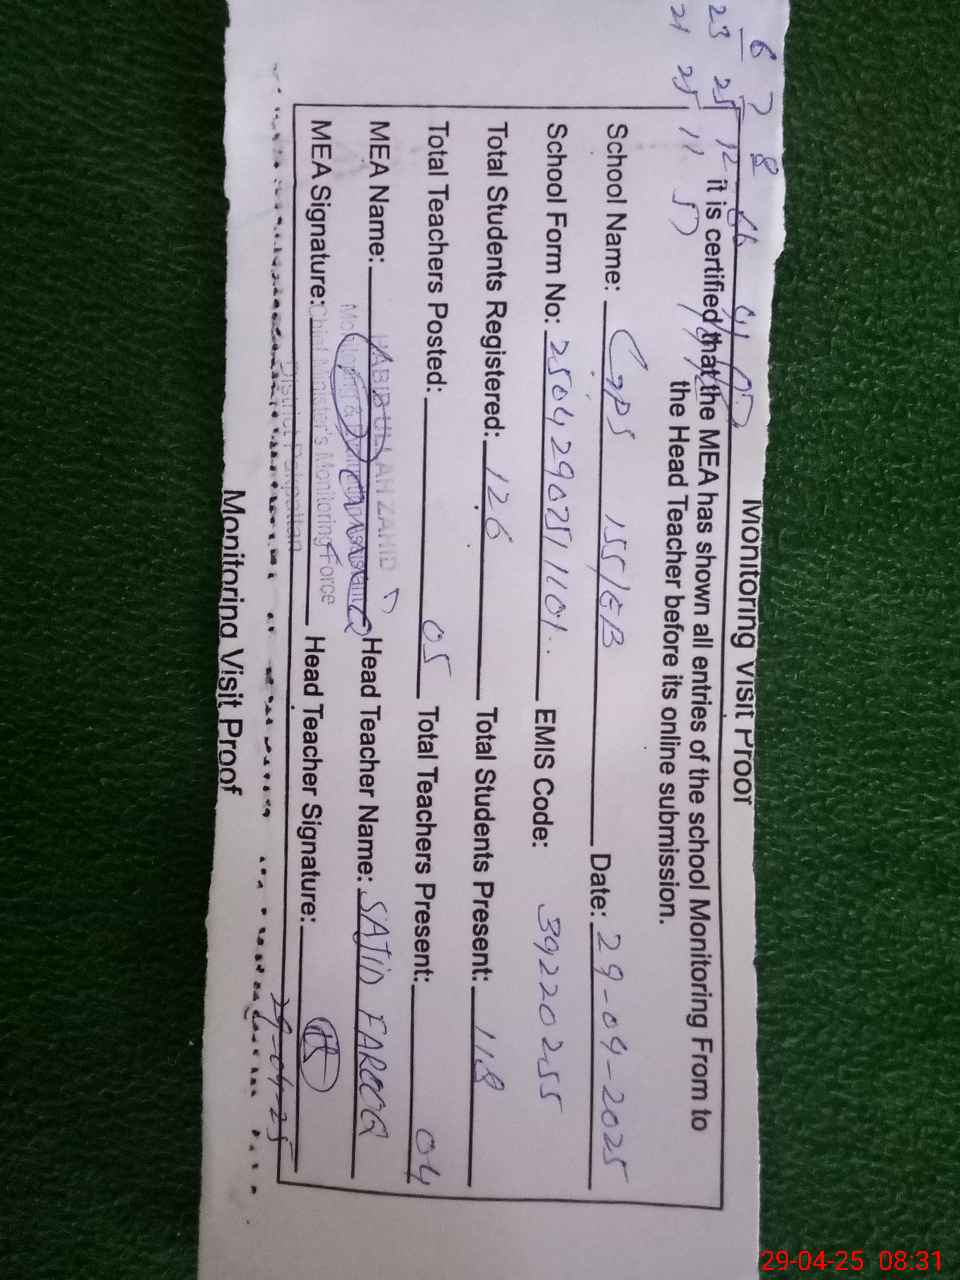 Monitoring Visit Proof
it is certified that the MEA has shown all entries of the school Monitoring From to
the Head Teacher before its online submission.
School Name: GPS 155/EB Date: 29-04-2025
School Form No: 25042902511101 EMIS Code: 39220255
Total Students Registered: 126 Total Students Present: 118
Total Teachers Posted: 05 Total Teachers Present: 04
MEA Name: HABIB ULLAH ZAHID Head Teacher Name: SAJID FAROOQ
Monitoring & 
MEA Signature: Chief Minister's Monitoring Force Head Teacher Signature:
District Pakpattan
29-04-25
Monitoring Visit Proof
6 7 8
23 25 12
21 25 11 57
29-04-25 08:31